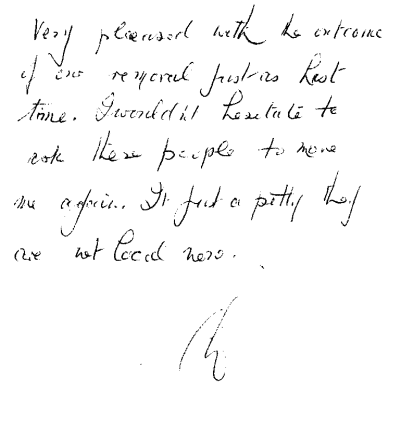 Very pleased with the outcome
of our removal just as last
time. I wouldn't hesitate to
ask these people to move
me again. It just a pitty they
are not local now.